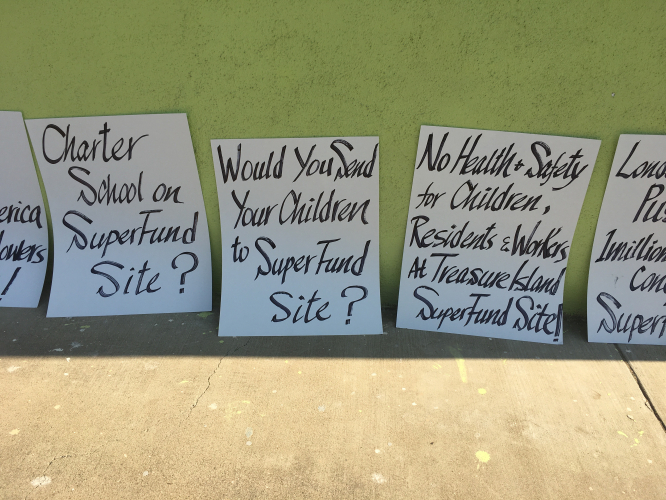 erica
!
Charter
School on
SuperFund
Site?
Would You Send
Your Children
to SuperFund
Site?
No Health & Safety
for Children,
Residents & Workers
At Treasure Island
SuperFund Site!